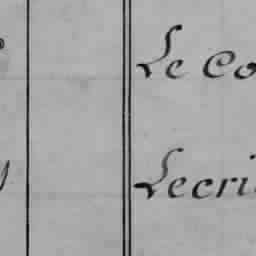 Le Co
Lecri